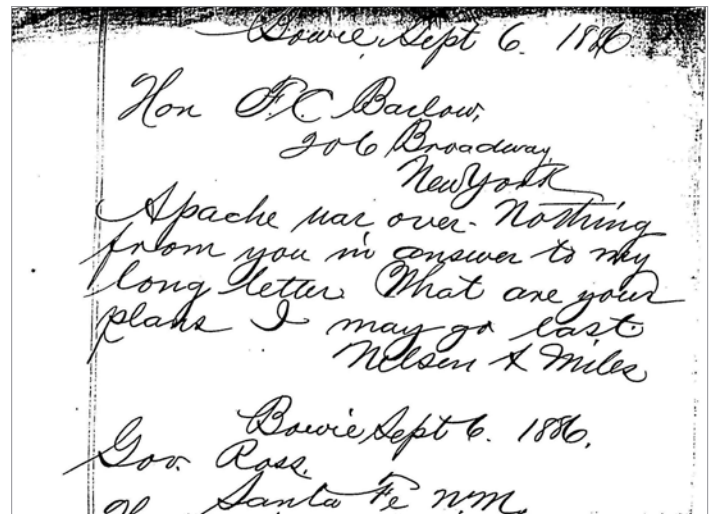 Bowie, Sept 6. 1886
Hon F. C. Barlow,
206 Broadway,
New York
Apache war over - Nothing
from you in answer to my
long letter. What are your
plans I may go east.
Nelson A Miles
Bowie Sept 6. 1886.
Gov. Ross.
Santa Fe N.M.